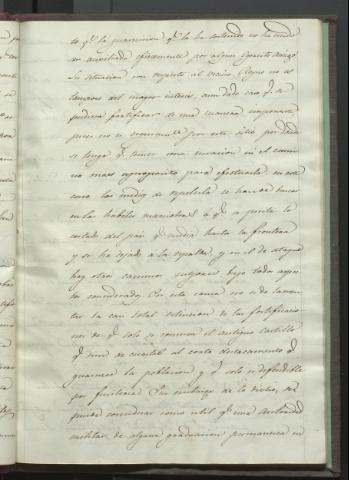 to qᵉ la guarnicion qᵉ la ha sostenido no ha sido
auxiliada eficazmente por algun Egercito amigo
Su situacion con respecto al vecino Reyno no es
tampoco del mayor interes, aun dado caso qᵉ se
pudiera fortificar de una manera imponente
pues no es por este sitio por donde
se tenga qᵉ temer una invasion ni el cami
no mas apropósito para efectuarla en este
caso los medios de repelerla se han de buscar
en las habiles maniobras á qᵉ se presta lo
cortado del pais qᵉ media hasta la frontera
y se ha dejado á la espalda, y en el de ataque
hay otros caminos mejores bajo todos aspec
tos considerados. Por esta causa no es de lamen
tar la casi total extincion de las fortificacio
nes de qᵉ solo se conserva el antiguo Castillo
qᵉ sirve de cuartel al corto destacamento qᵉ
guarnece la poblacion y qᵉ solo es defendible
por fusileria. Sin embargo de lo dicho,
puede considerar como util qᵉ una autoridad
militar de alguna graduacion permanezca en